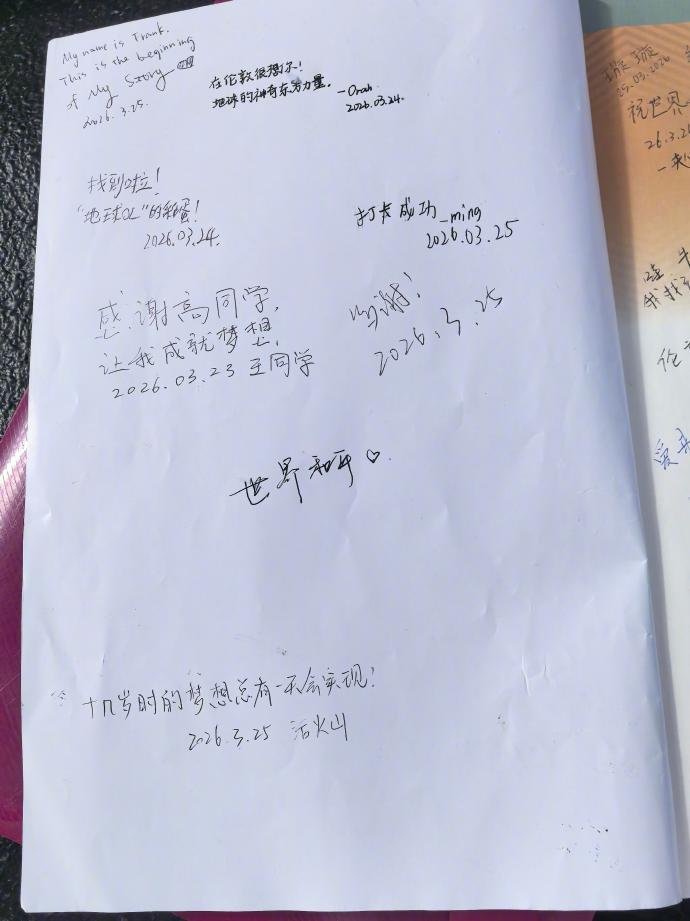 My name is Trank.
This is the beginning
of My Story
2026.3.25.
在伦敦很想你!
地球的神奇东方力量。
-Orah
2026.03.24.
找到啦!
"地球OL"的彩蛋!
2026.03.24.
打卡成功 -ming
2026.03.25
感谢高同学,
让我成就梦想,
2026.03.23 王同学
谢!
2026.3.25
世界和平♡
十几岁时的梦想总有一天会实现!
2026.3.25 活火山
璇璇
25.03.2026
祝世界
26.3.2
我
伦
爱